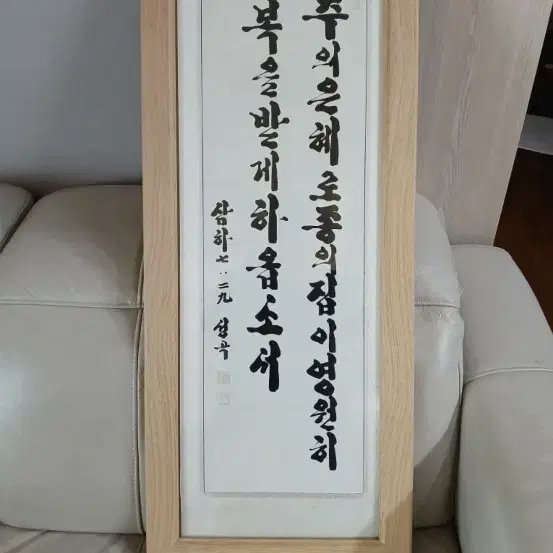 주의은혜로종의집이영원히
복을받게하옵소서
삼하七:二九 성곡